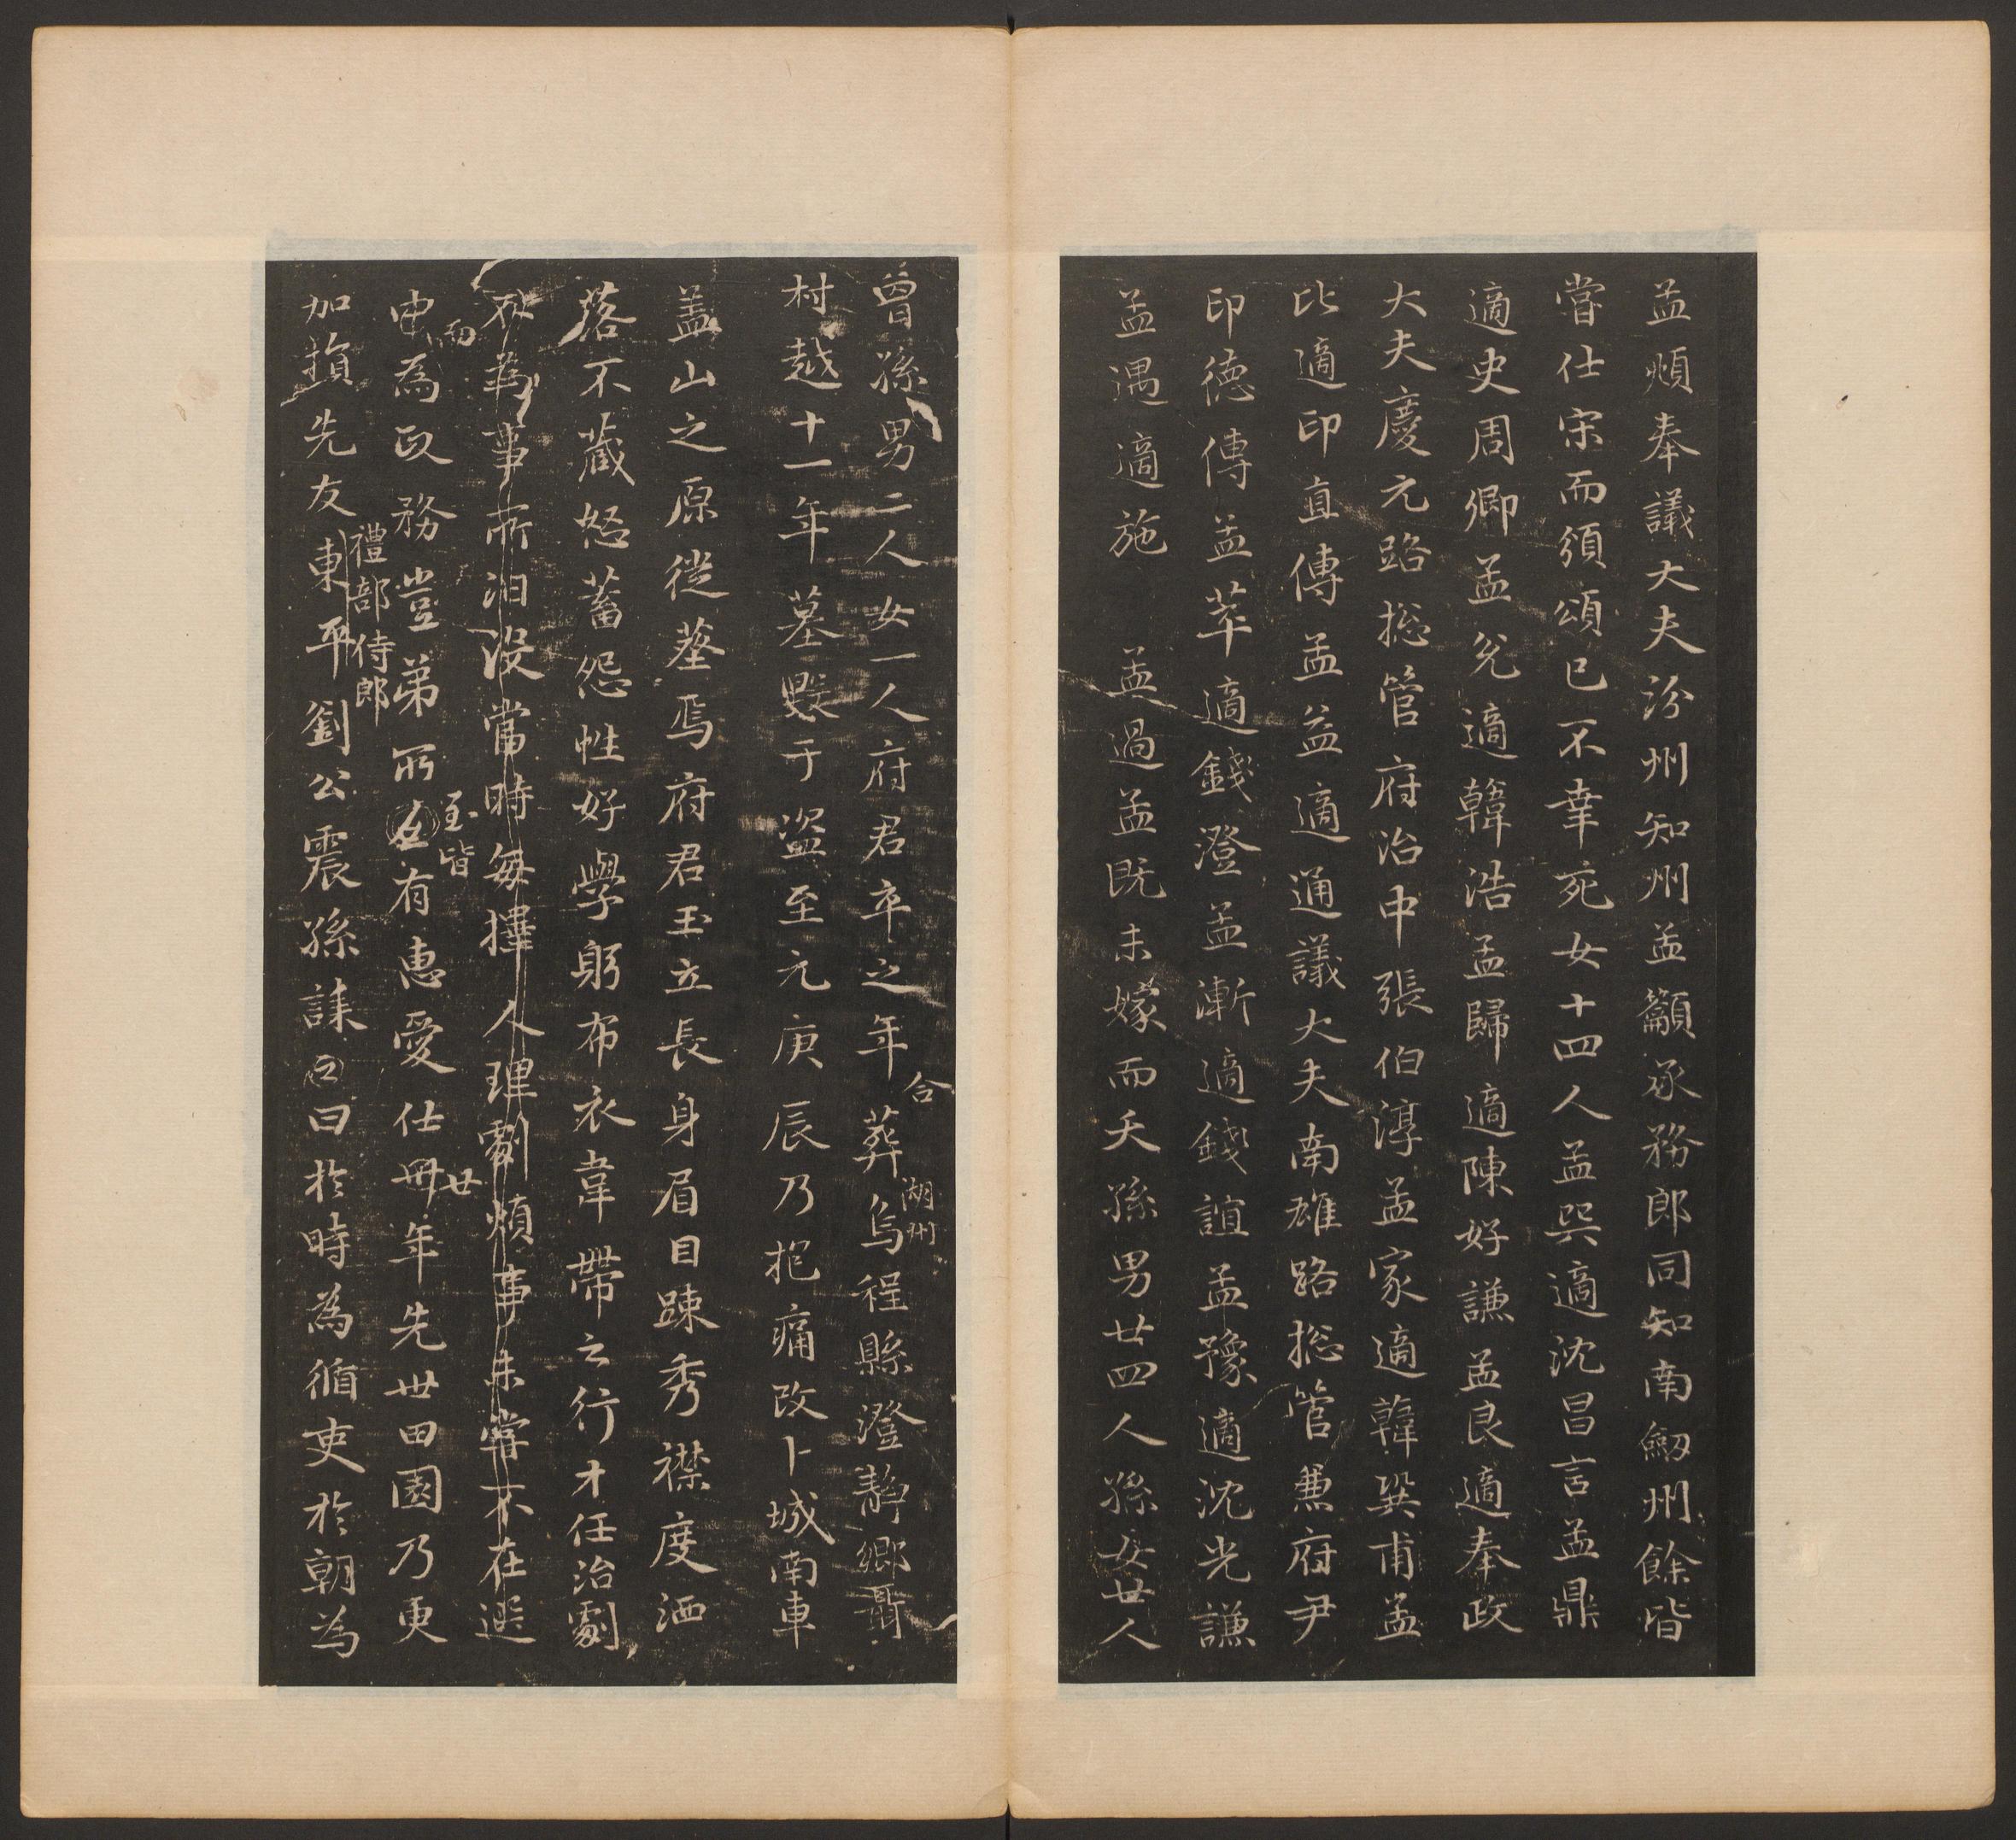 孟頫奉議大夫汾州知州孟籲承務郎同知南劒州餘皆
嘗仕宋而須頌已不幸死女十四人孟巽適沈昌言孟鼎
適史周卿孟允適韓浩孟歸適陳好謙孟良適奉政
大夫慶元路揔管府治中張伯淳孟家適韓巽甫孟
比適印直傳孟益適通議大夫南雄路揔管兼府尹
印德傳孟萃適錢澄孟漸適錢誼孟豫適沈光謙
孟遇適施 孟過孟既未嫁而夭孫男廿四人孫女廿人
曾孫男二人女一人府君卒之年合葬湖州烏程縣澄靜鄉聶
村越十一年墓毀于盗至元庚辰乃抱痛改卜城南車
盖山之原從葬焉府君玉立長身眉目踈秀襟度洒
落不藏怒蓄怨性好學躬布衣韋帶云行才任治劇
不為事所汩没當時每擇人理劇煩事未嘗不在選
中而為政務豈弟所至皆有惠愛仕廿年先世田園乃更
加損先友禮部侍郎東平劉公震孫誄之曰於時為循吏於朝為